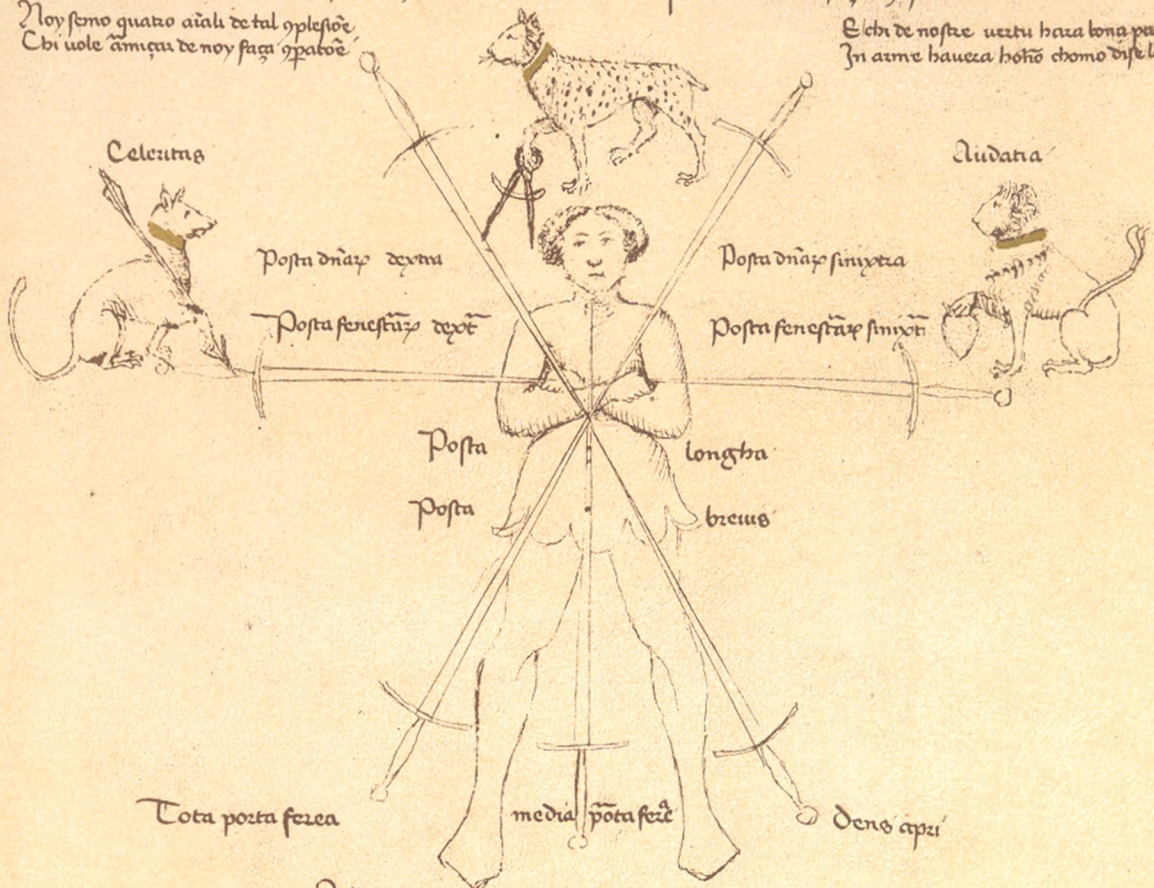 Noy semo quatro aīali de tal ꝯplesiōe
Chi uole āmiçar de noy faça ꝯꝑatōe
E chi de nostre uertu hara bona
In arme hauera honō chomo
Celeritas
Audatia
Posta dn̄aꝝ dextra
Posta dn̄aꝝ sinixtra
Posta fenestāꝝ dext̄
Posta fenestāꝝ sinixt̄
Posta longha
Posta breuis
Tota porta ferea
media pōta fere
Dens apri